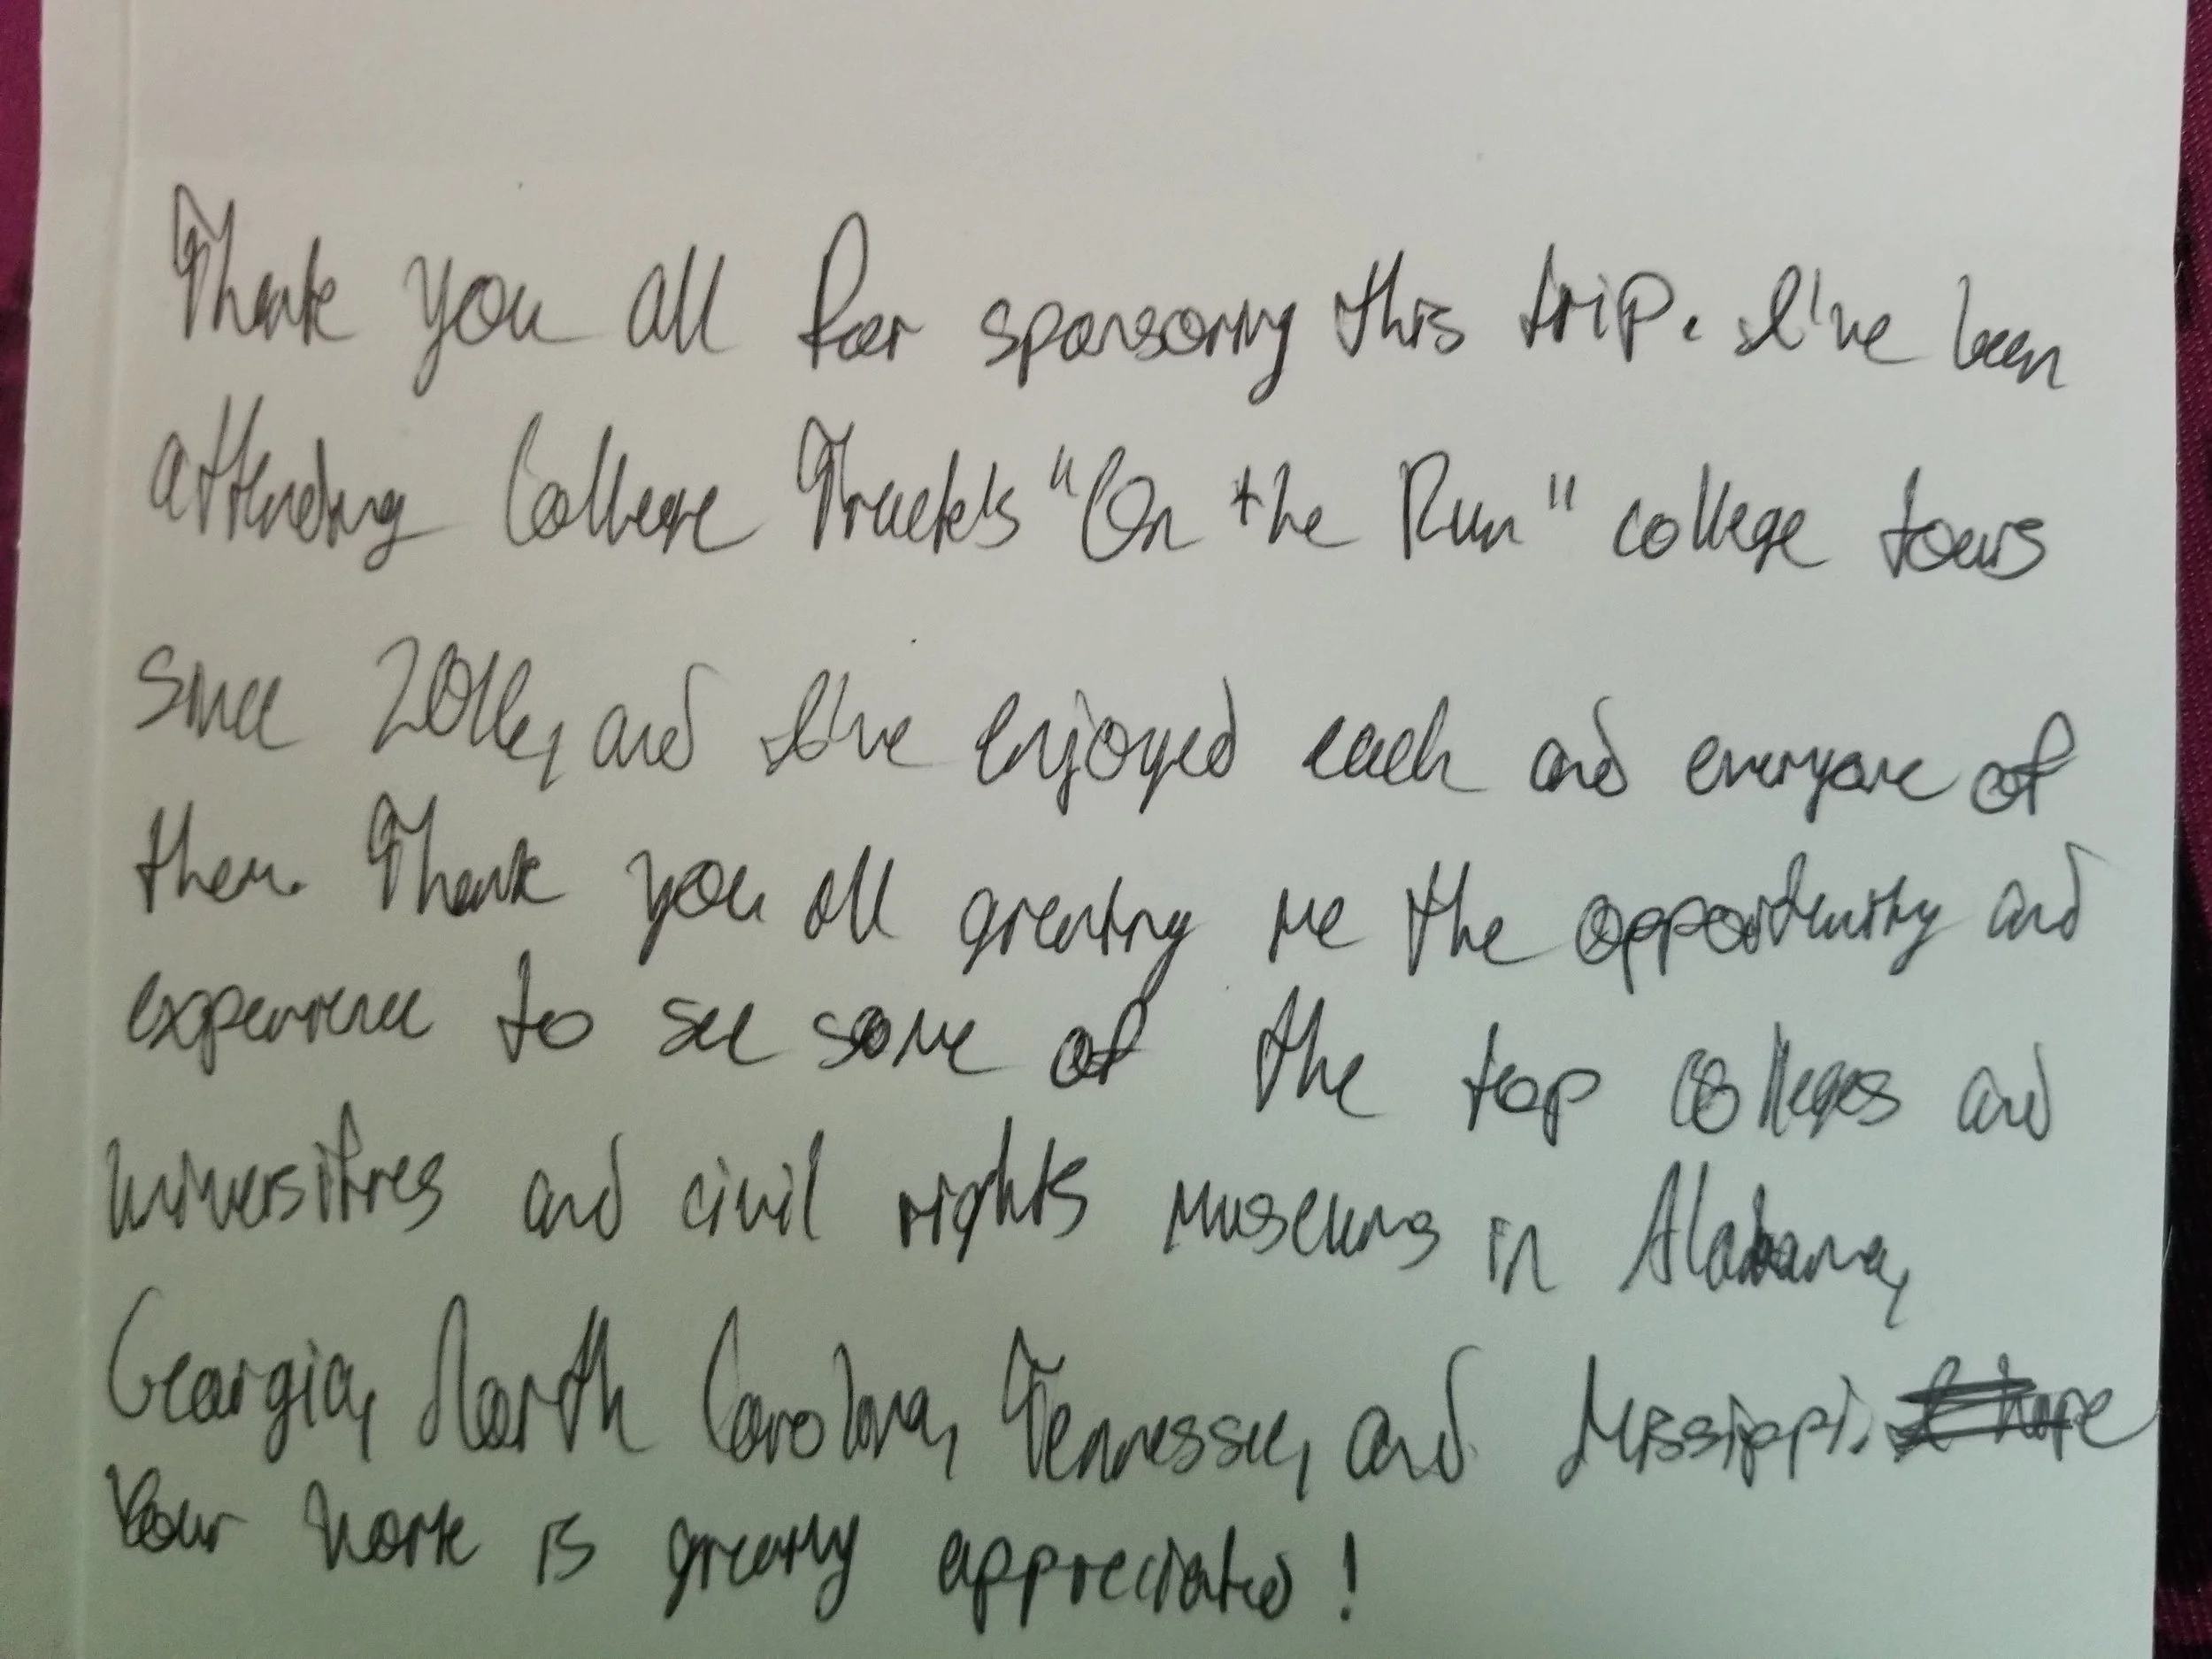 Thank you all for sponsoring this trip. I've been
attending College Track's "On the Run" college tours
since 2016, and I've enjoyed each and everyone of
them. Thank you all granting me the opportunity and
experience to see some of the top colleges and
universities and civil rights museums in Alabama,
Georgia, North Carolina, Tennessee, and Mississippi. I hope
Your work is greatly appreciated!